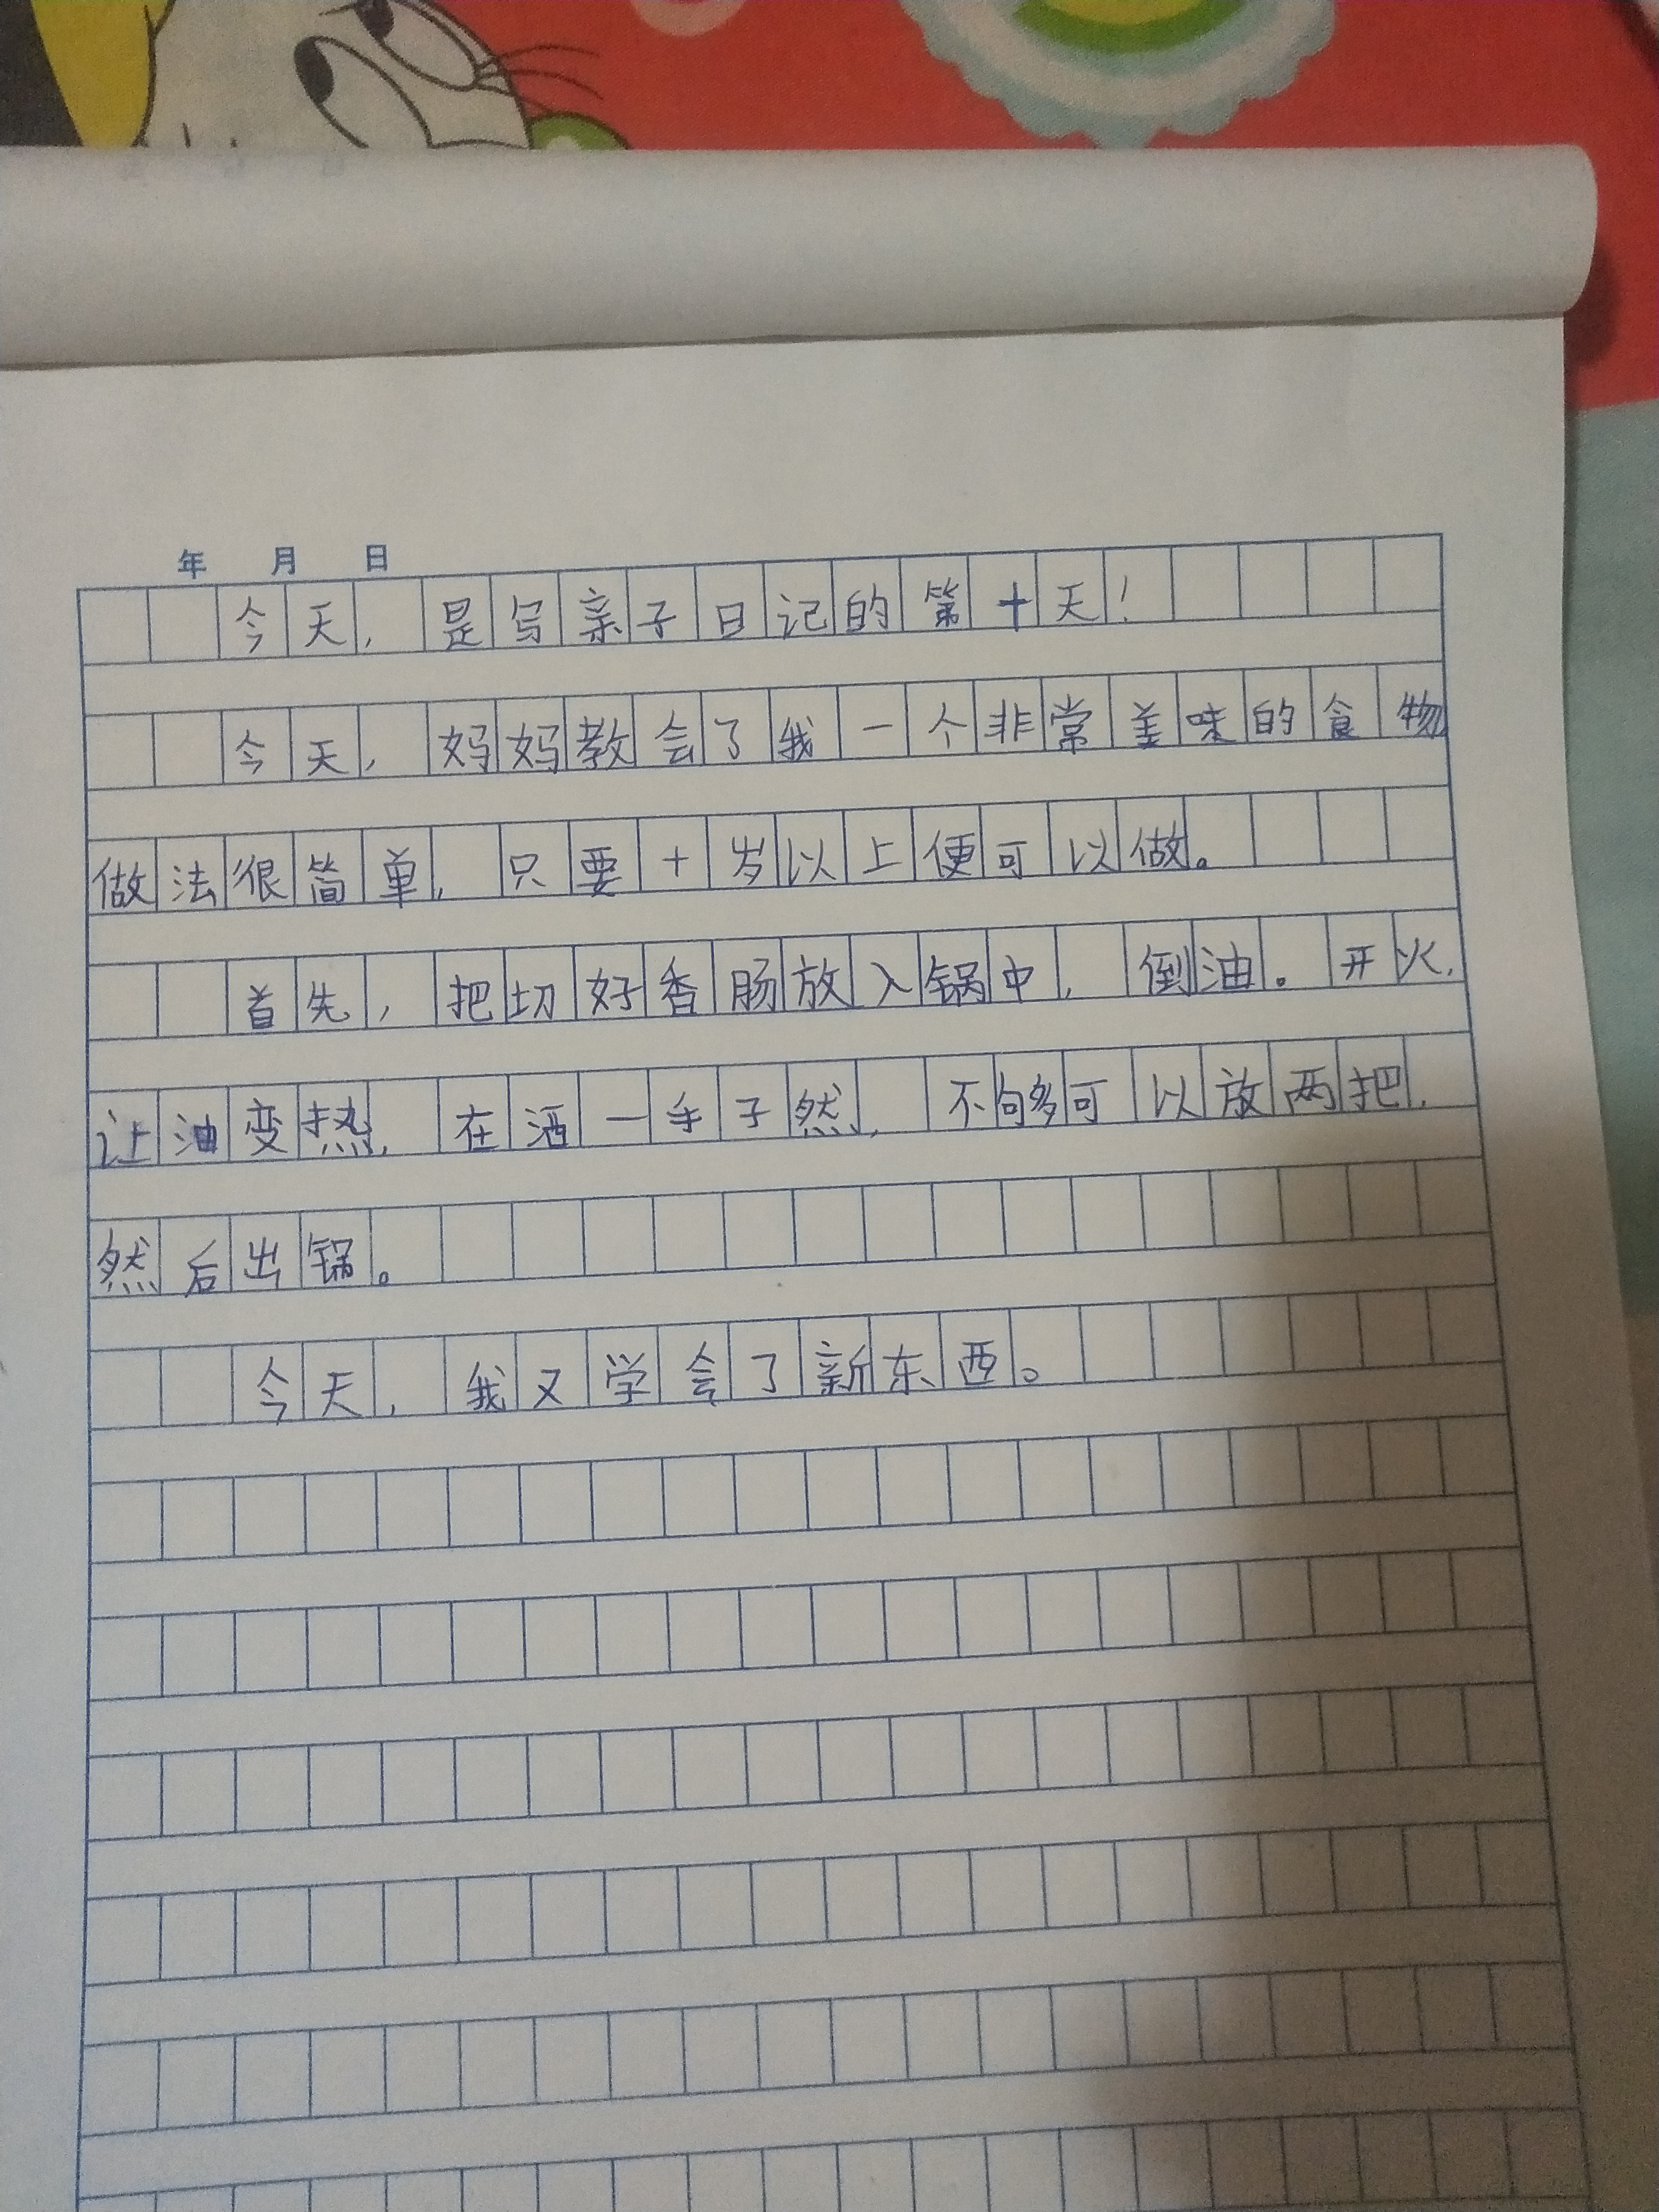 年 月 日
今天，是写亲子日记的第十天！
今天，妈妈教会了我一个非常美味的食物，
做法很简单，只要十岁以上便可以做。
首先，把切好香肠放入锅中，倒油。开火，
让油变热，在洒一手子然，不够可以放两把，
然后出锅。
今天，我又学会了新东西。